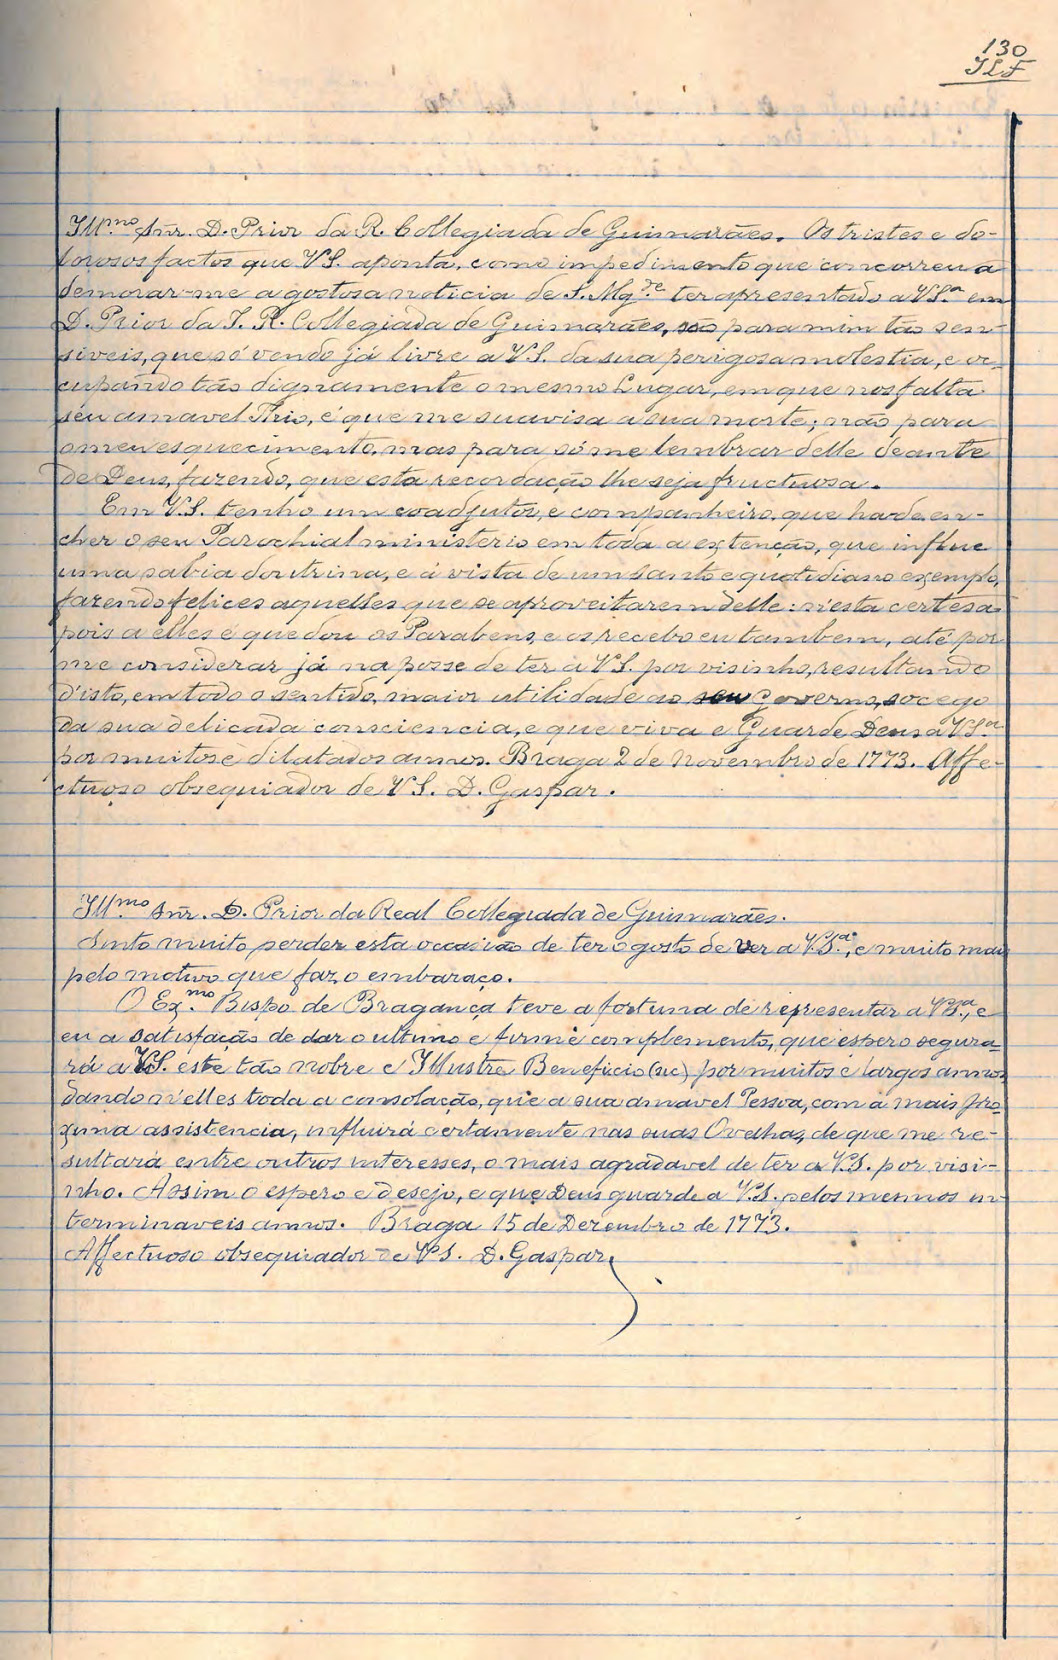 130
Ill.mo Snr. D. Prior da R. Collegiada de Guimarães. Os tristes e do-
lorosos factos que V.S. aponta, como impedimento que concorreu a
demorar-me a gostosa noticia de S. Mg.de ter apresentado a V.S.a em
D. Prior da I. R. Collegiada de Guimarães, são para mim tão sen-
siveis, que só vendo já livre a V.S. da sua perigosa molestia, e oc-
cupando tão dignamente o mesmo Lugar, em que nos falta
seu amavel Thio, é que me suavisa a sua morte; não para
o meu esquecimento, mas para só me lembrar delle deante
de Deus, fazendo, que esta recordação lhe seja fructuosa.
Em V.S. tenho um coadjutor, e companheiro, que hade en-
cher o seu Parochial ministerio em toda a extenção, que influe
uma sabia doutrina, e á vista de um santo e quotidiano exemplo,
fazendo felices aquelles que se aproveitarem delle: n'esta certesa
pois a elles é que dou os Parabens, e os recebo eu tambem, até por
me considerar já na posse de ter a V.S. por visinho, resultando
d'isto, em todo o sentido, maior utilidade ao seu Governo, socego
da sua delicada consciencia, e que viva e Guarde Deus a V.S.a
por muitos e dilatados annos. Braga 2 de Novembro de 1773. Affe-
ctuoso obsequiador de V.S. D. Gaspar.
Ill.mo Snr. D. Prior da Real Collegiada de Guimarães.
Sinto muito perder esta occasião de ter o gosto de ver a V.S.a, e muito mais
pelo motivo que faz o embaraço.
O Ex.mo Bispo de Bragança teve a fortuna de representar a V.S.a, e
eu a satisfação de dar o ultimo e firme complemento, que espero segura-
rá a V.S. este tão nobre e Illustre Beneficio (sic) por muitos e largos annos
dando n'elles toda a consolação, que a sua amavel Pessoa, com a mais pro-
xima assistencia, influirá certamente nas suas Ovelhas, de que me re-
sultará entre outros interesses, o mais agradavel de ter a V.S. por visi-
nho. Assim o espero e desejo, e que Deus guarde a V.S. pelos mesmos in-
terminaveis annos. Braga 15 de Dezembro de 1773.
Affectuoso obsequiador de V.S. D. Gaspar